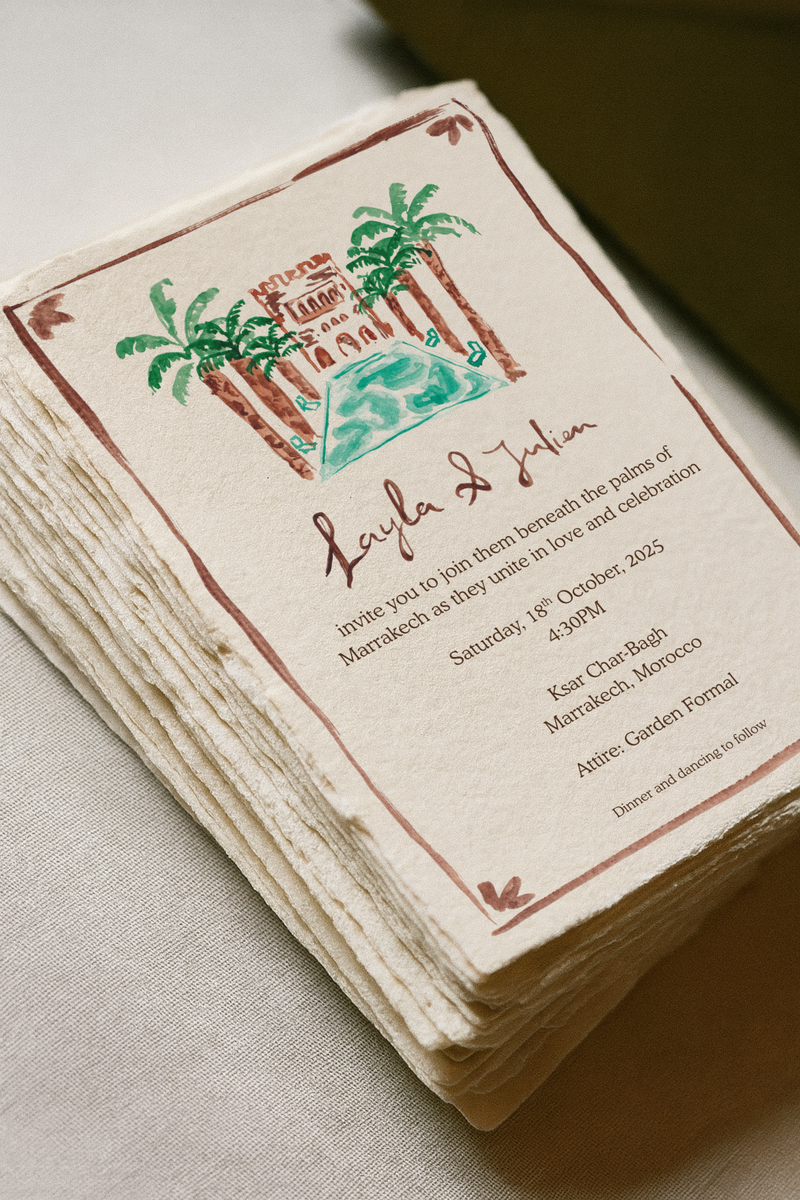 Layla & Julien
invite you to join them beneath the palms of
Marrakech as they unite in love and celebration
Saturday, 18th October, 2025
4:30PM
Ksar Char-Bagh
Marrakech, Morocco
Attire: Garden Formal
Dinner and dancing to follow